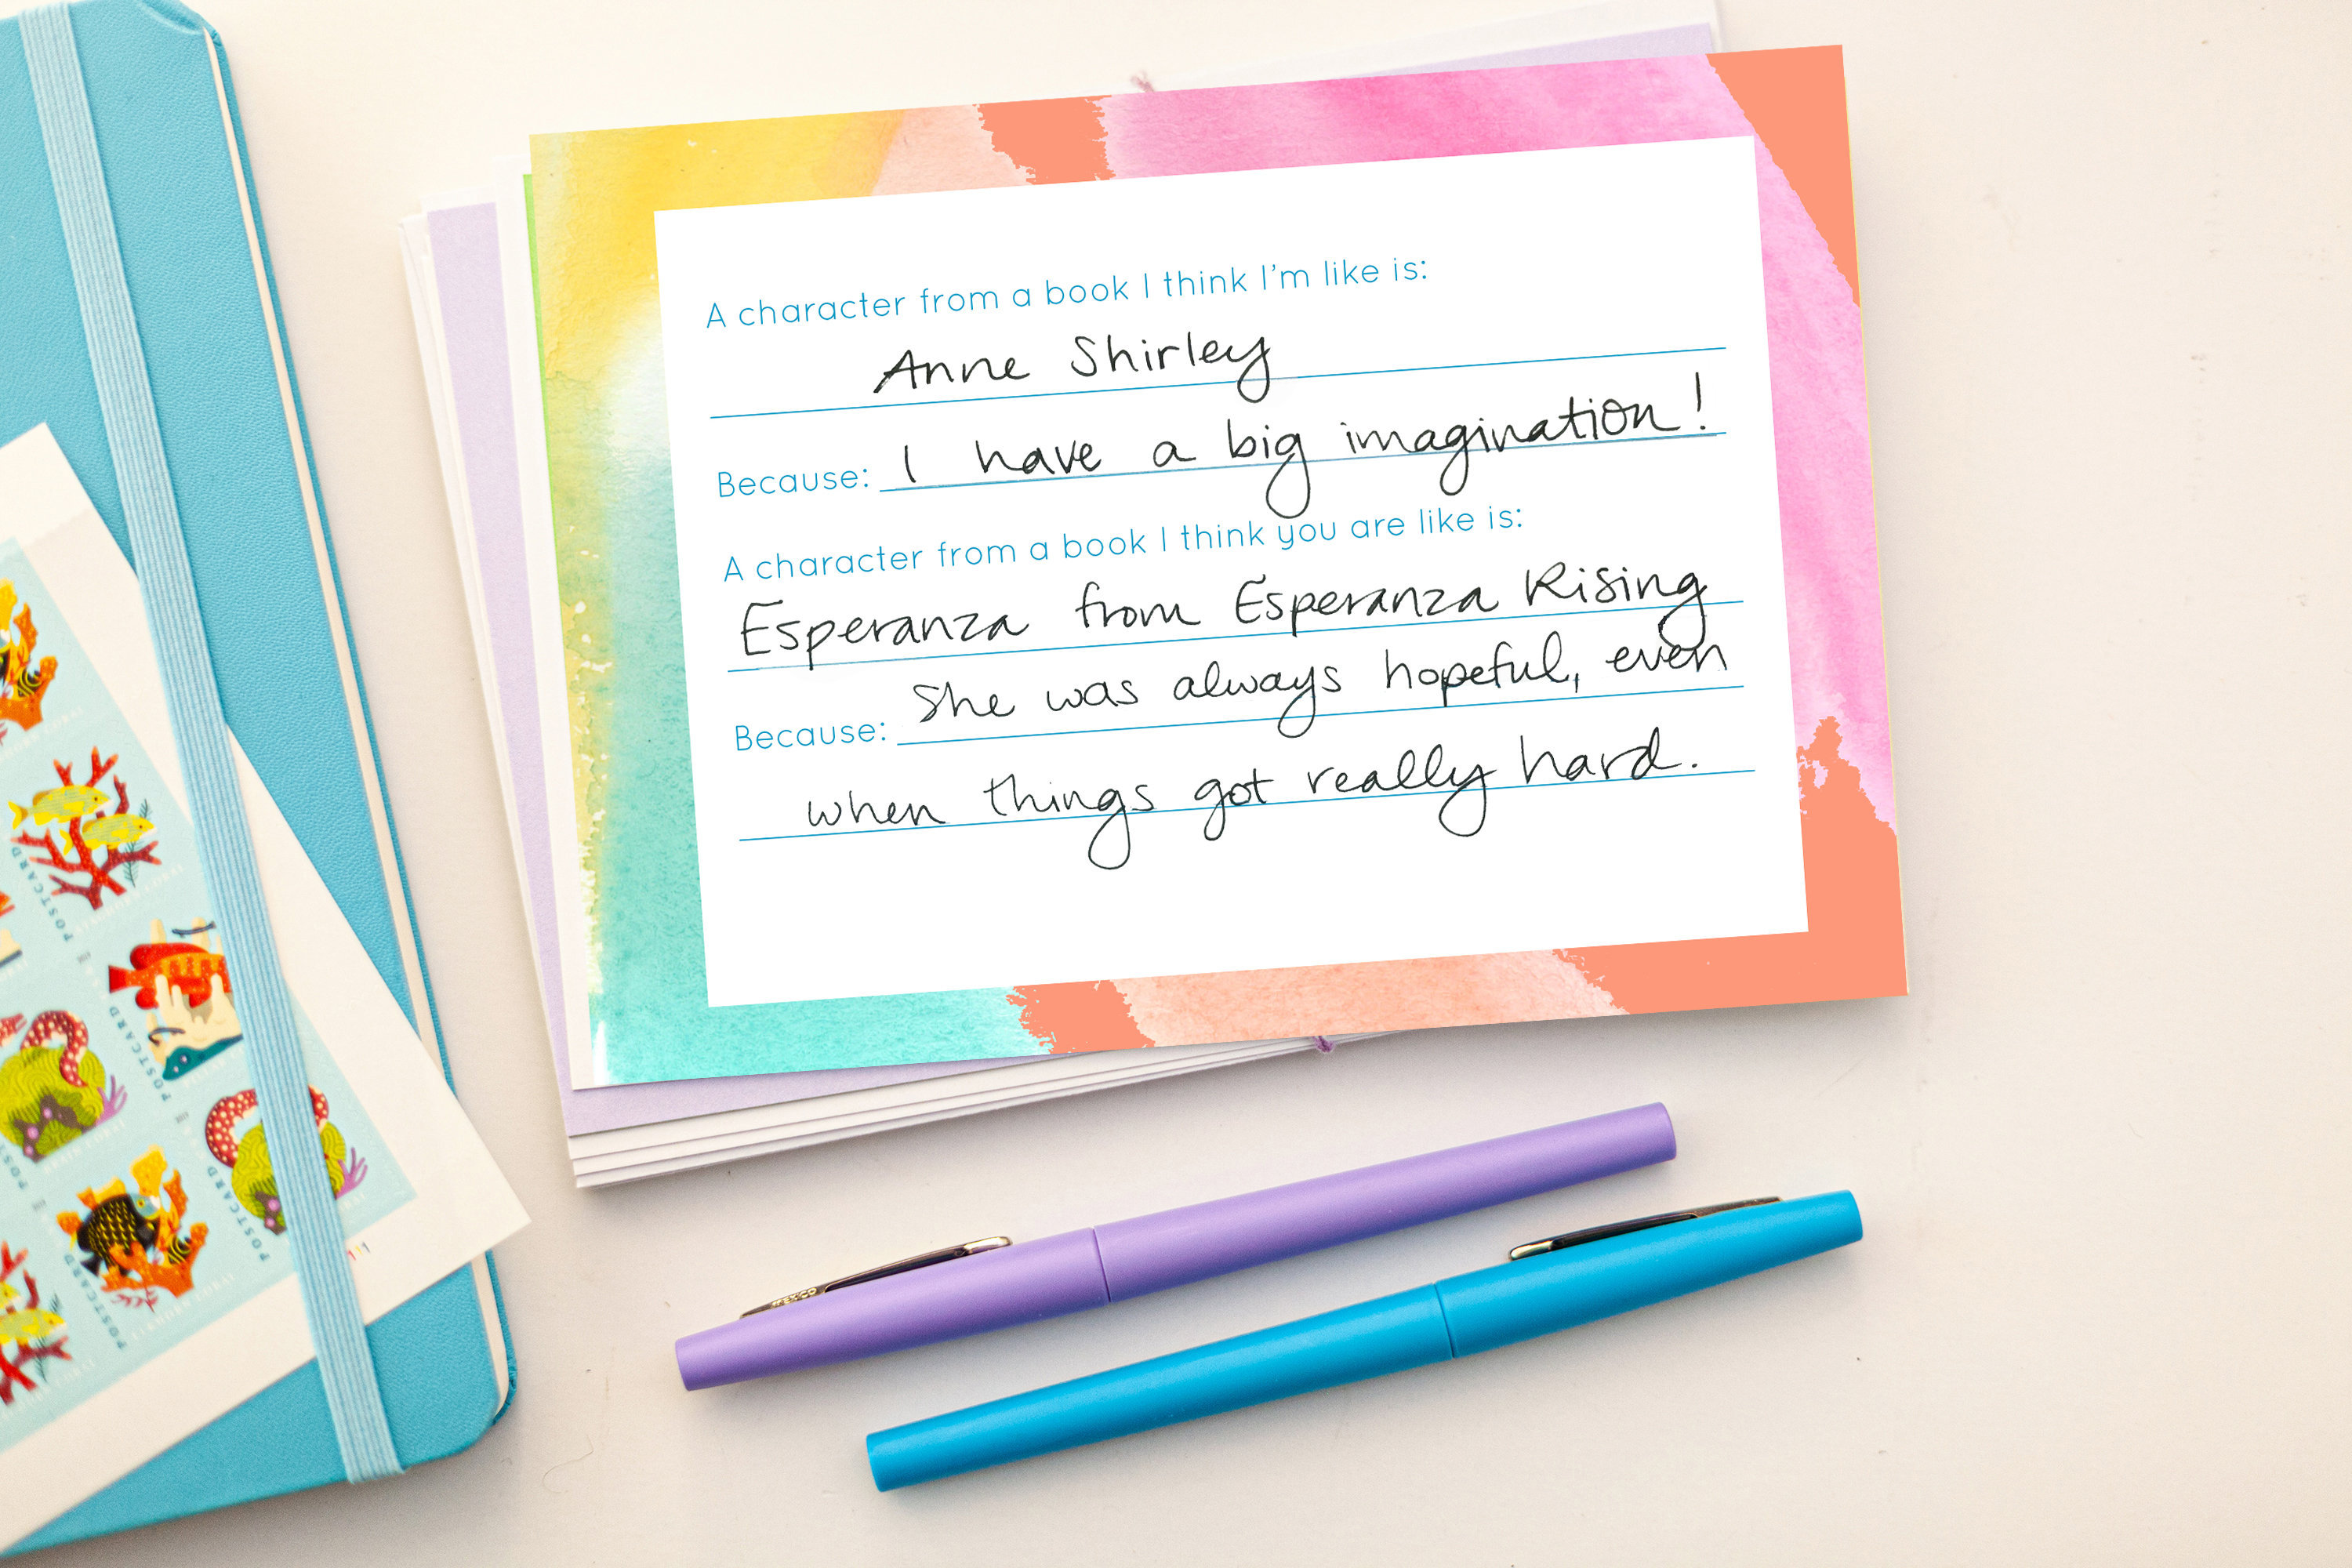 A character from a book I think I'm like is:
Anne Shirley
Because: I have a big imagination!
A character from a book I think you are like is:
Esperanza from Esperanza Rising
Because: She was always hopeful, even
when things got really hard.
POSTCARD
POSTCARD
POSTCARD
POSTCARD
MEXICO